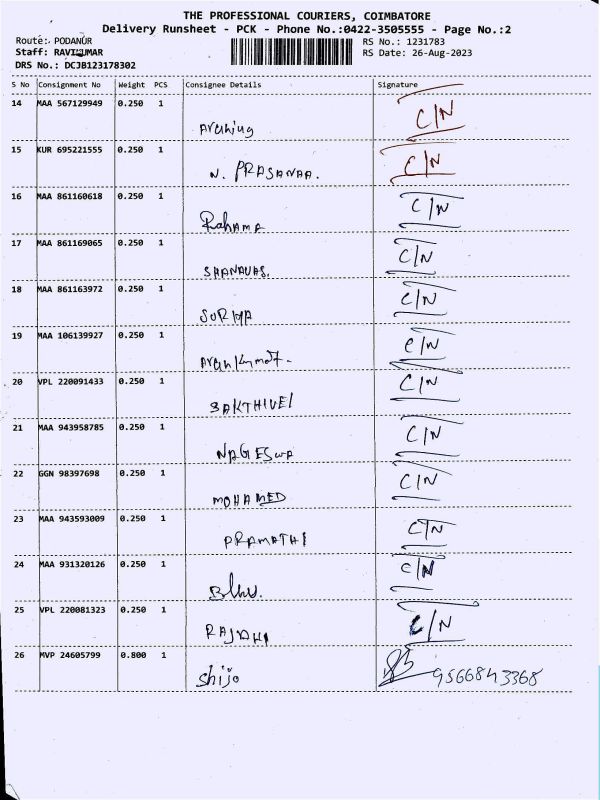 THE PROFESSIONAL COURIERS, COIMBATORE
Delivery Runsheet - PCK - Phone No.:0422-3505555 - Page No.:2
Route: PODANUR RS No.: 1231783
Staff: RAVIKUMAR RS Date: 26-Aug-2023
DRS No.: DCJB123178302
S No Consignment No Weight PCS Consignee Details Signature
14 MAA 567129949 0.250 1 C/N
15 KUR 695221555 0.250 1 N. PRASANAA. C/N
16 MAA 861160618 0.250 1 Rahama C/N
17 MAA 861169065 0.250 1 SHANAVAS. C/N
18 MAA 861163972 0.250 1 SURIYA C/N
19 MAA 106139927 0.250 1 Arunkumar. C/N
20 VPL 220091433 0.250 1 SAKTHIVEl C/N
21 MAA 943958785 0.250 1 NAGESWA C/N
22 GGN 98397698 0.250 1 MOHAMED C/N
23 MAA 943593009 0.250 1 PRAMATHI C/N
24 MAA 931320126 0.250 1 C/N
25 VPL 220081323 0.250 1 C/N
26 MVP 24605799 0.800 1 Shijo 9566843368